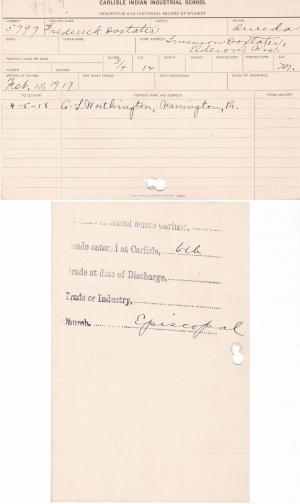 CARLISLE INDIAN INDUSTRIAL SCHOOL
DESCRIPTIVE AND HISTORICAL RECORD OF STUDENT
NUMBER ENGLISH NAME AGENCY NATION
5797 Frederick Doxtater Oneida
BAND INDIAN NAME HOME ADDRESS
Doxtater,
Wis.
PARENTS LIVING OR DEAD BLOOD AGE HEIGHT WEIGHT FORCED INSP. FORCED EXPR. SEX
FATHER MOTHER 3/4 14 M.
ARRIVED AT SCHOOL FOR WHAT PERIOD DATE DISCHARGED CAUSE OF DISCHARGE
Feb. 15, 1917
TO COUNTRY PATRONS NAME AND ADDRESS FROM COUNTRY
4-5-18 C. S. Worthington, Warrington, Pa.
School before Carlisle,
Grade entered at Carlisle, 6th
Grade at date of Discharge,
Trade or Industry,
Church. Episcopal